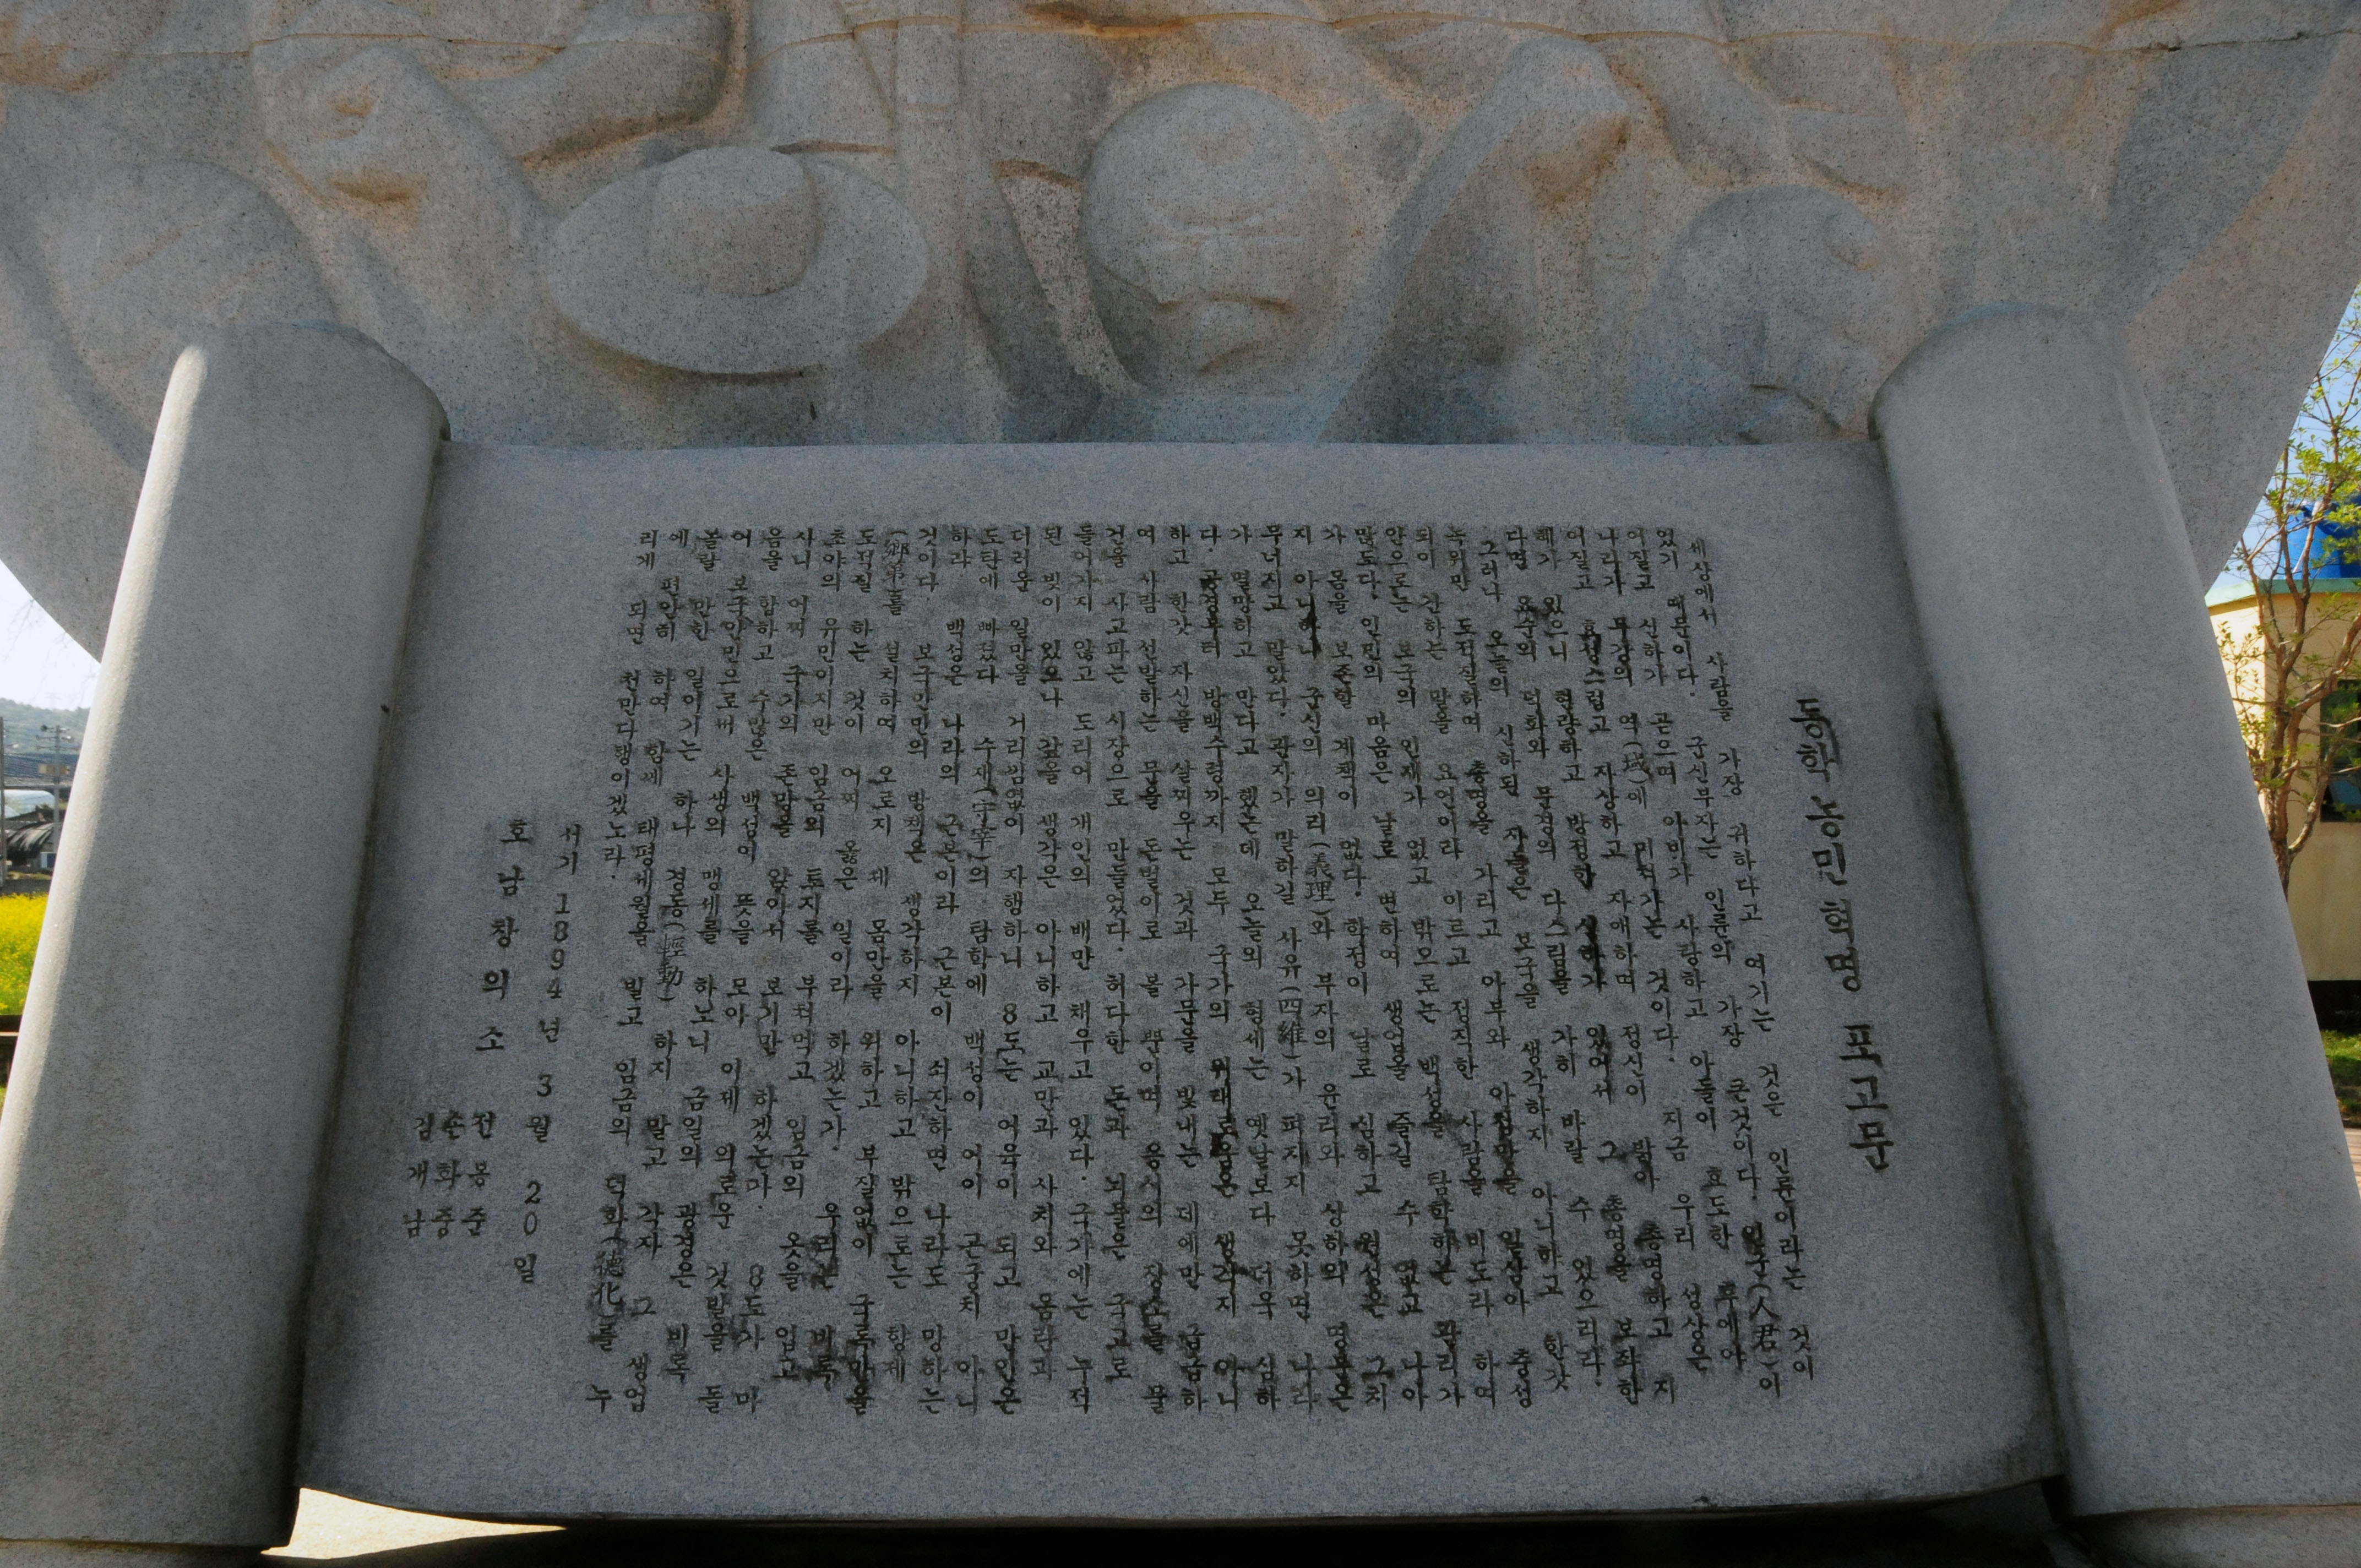 동학농민혁명 포고문
세상에서 사람을 가장 귀하다고 여기는 것은 인륜이라는 것이
있기 때문이다. 군신부자는 인륜의 가장 큰것이다. 인군(人君)이
어질고 신하가 곧으며 아비가 사랑하고 아들이 효도한 후에야
나라가 무강의 역(域)에 미쳐가는 것이다. 지금 우리 성상은
어질고 효성스럽고 자상하고 자애하며 정신이 밝아 총명하고 지
혜가 있으니 현량하고 방정한 신하가 있어서 그 총명을 보좌한
다면 요순의 덕화와 문경의 다스림을 가히 바랄 수 있으리라.
그러나 오늘의 신하된 자들은 보국을 생각하지 아니하고 한갓
녹위만 도적질하여 총명을 가리고 아부와 아첨만을 일삼아 충성
되이 간하는 말을 요언이라 이르고 정직한 사람을 비도라 하여
안으로는 보국의 인재가 없고 밖으로는 백성을 탐학하는 관리가
많도다. 인민의 마음은 날로 변하여 생업을 즐길 수 없고 나아
가 몸을 보존할 계책이 없다. 학정이 날로 심하고 원성은 그치
지 아니하니 군신의 의리(義理)와 부자의 윤리와 상하의 명분은
무너지고 말았다. 관자가 말하길 사유(四維)가 펴지지 못하면 나라
가 멸망하고 만다고 했는데 오늘의 형세는 옛날보다 더욱 심하
다. 공경부터 방백수령까지 모두 국가의 위태로움은 생각지 아니
하고 한갓 자신을 살찌우는 것과 가문을 빛내는 데에만 급급하
여 사람 선발하는 문을 돈벌이로 볼 뿐이며 응시의 장소를 물
건을 사고파는 시장으로 만들었다. 허다한 돈과 뇌물은 국고로
들어가지 않고 도리어 개인의 배만 채우고 있다. 국가에는 누적
된 빚이 있으나 갚을 생각은 아니하고 교만과 사치와 음란과
더러운 일만을 거리낌없이 자행하니 8도는 어육이 되고 만인은
도탄에 빠졌다 수재(守宰)의 탐학에 백성이 어이 곤궁치 아니
하랴 백성은 나라의 근본이라 근본이 쇠잔하면 나라도 망하는
것이다. 보국안민의 방책은 생각하지 아니하고 밖으로는 향제
(鄕第)를 설치하여 오로지 제 몸만을 위하고 부질없이 국록만을
도적질 하는 것이 어찌 옳은 일이라 하겠는가. 우리는 비록
초야의 유민이지만 임금의 토지를 부쳐먹고 임금의 옷을 입고
사니 어찌 국가의 존망을 앉아서 보기만 하겠는가. 8도가 마
음을 합하고 수많은 백성이 뜻을 모아 이제 의로운 깃발을 들
어 보국안민으로써 사생의 맹세를 하노니 금일의 광경은 비록
놀랄 만한 일이기는 하나 경동(輕動)하지 말고 각자 그 생업
에 편안히 하여 함께 태평세월을 빌고 임금의 덕화(德化)를 누
리게 되면 천만다행이겠노라.
서기 1894년 3월 20일
호남창의소
전봉준
손화중
김개남